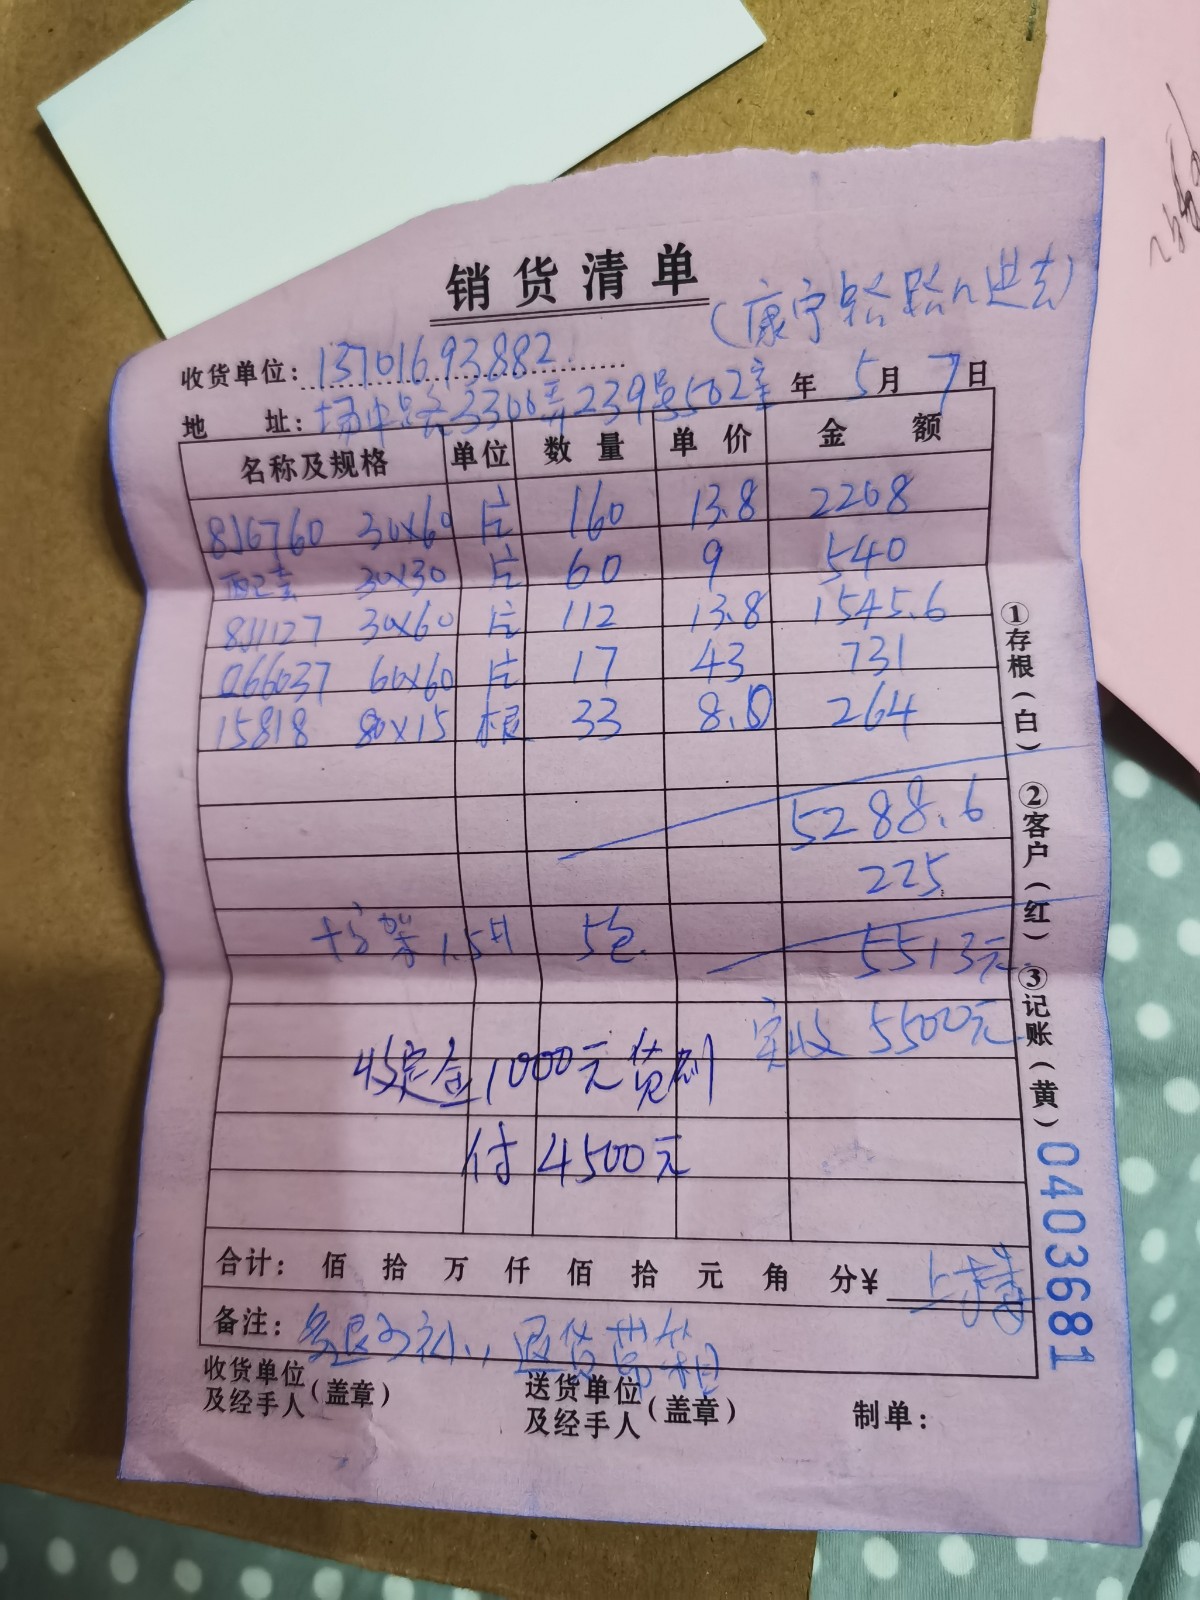 销货清单
(康宁路路口进去)
收货单位: 13701693882
年 5月 7日
地 址: 场中路3306弄239号502室
名称及规格 单位 数量 单价 金额
816760 30x60 片 160 13.8 2208
配套 30x30 片 60 9 540
811127 30x60 片 112 13.8 1545.6
Q66037 60x60 片 17 43 731
15818 80x15 根 33 8.0 264
5288.6
225
十字架 1.5 5包 5513元
实收 5500元
收定金1000元货到
付 4500元
合计: 佰 拾 万 仟 佰 拾 元 角 分¥
备注: 多退少补,退货带箱
收货单位及经手人(盖章) 送货单位及经手人(盖章) 制单:
①存根(白) ②客户(红) ③记账(黄)
0403681